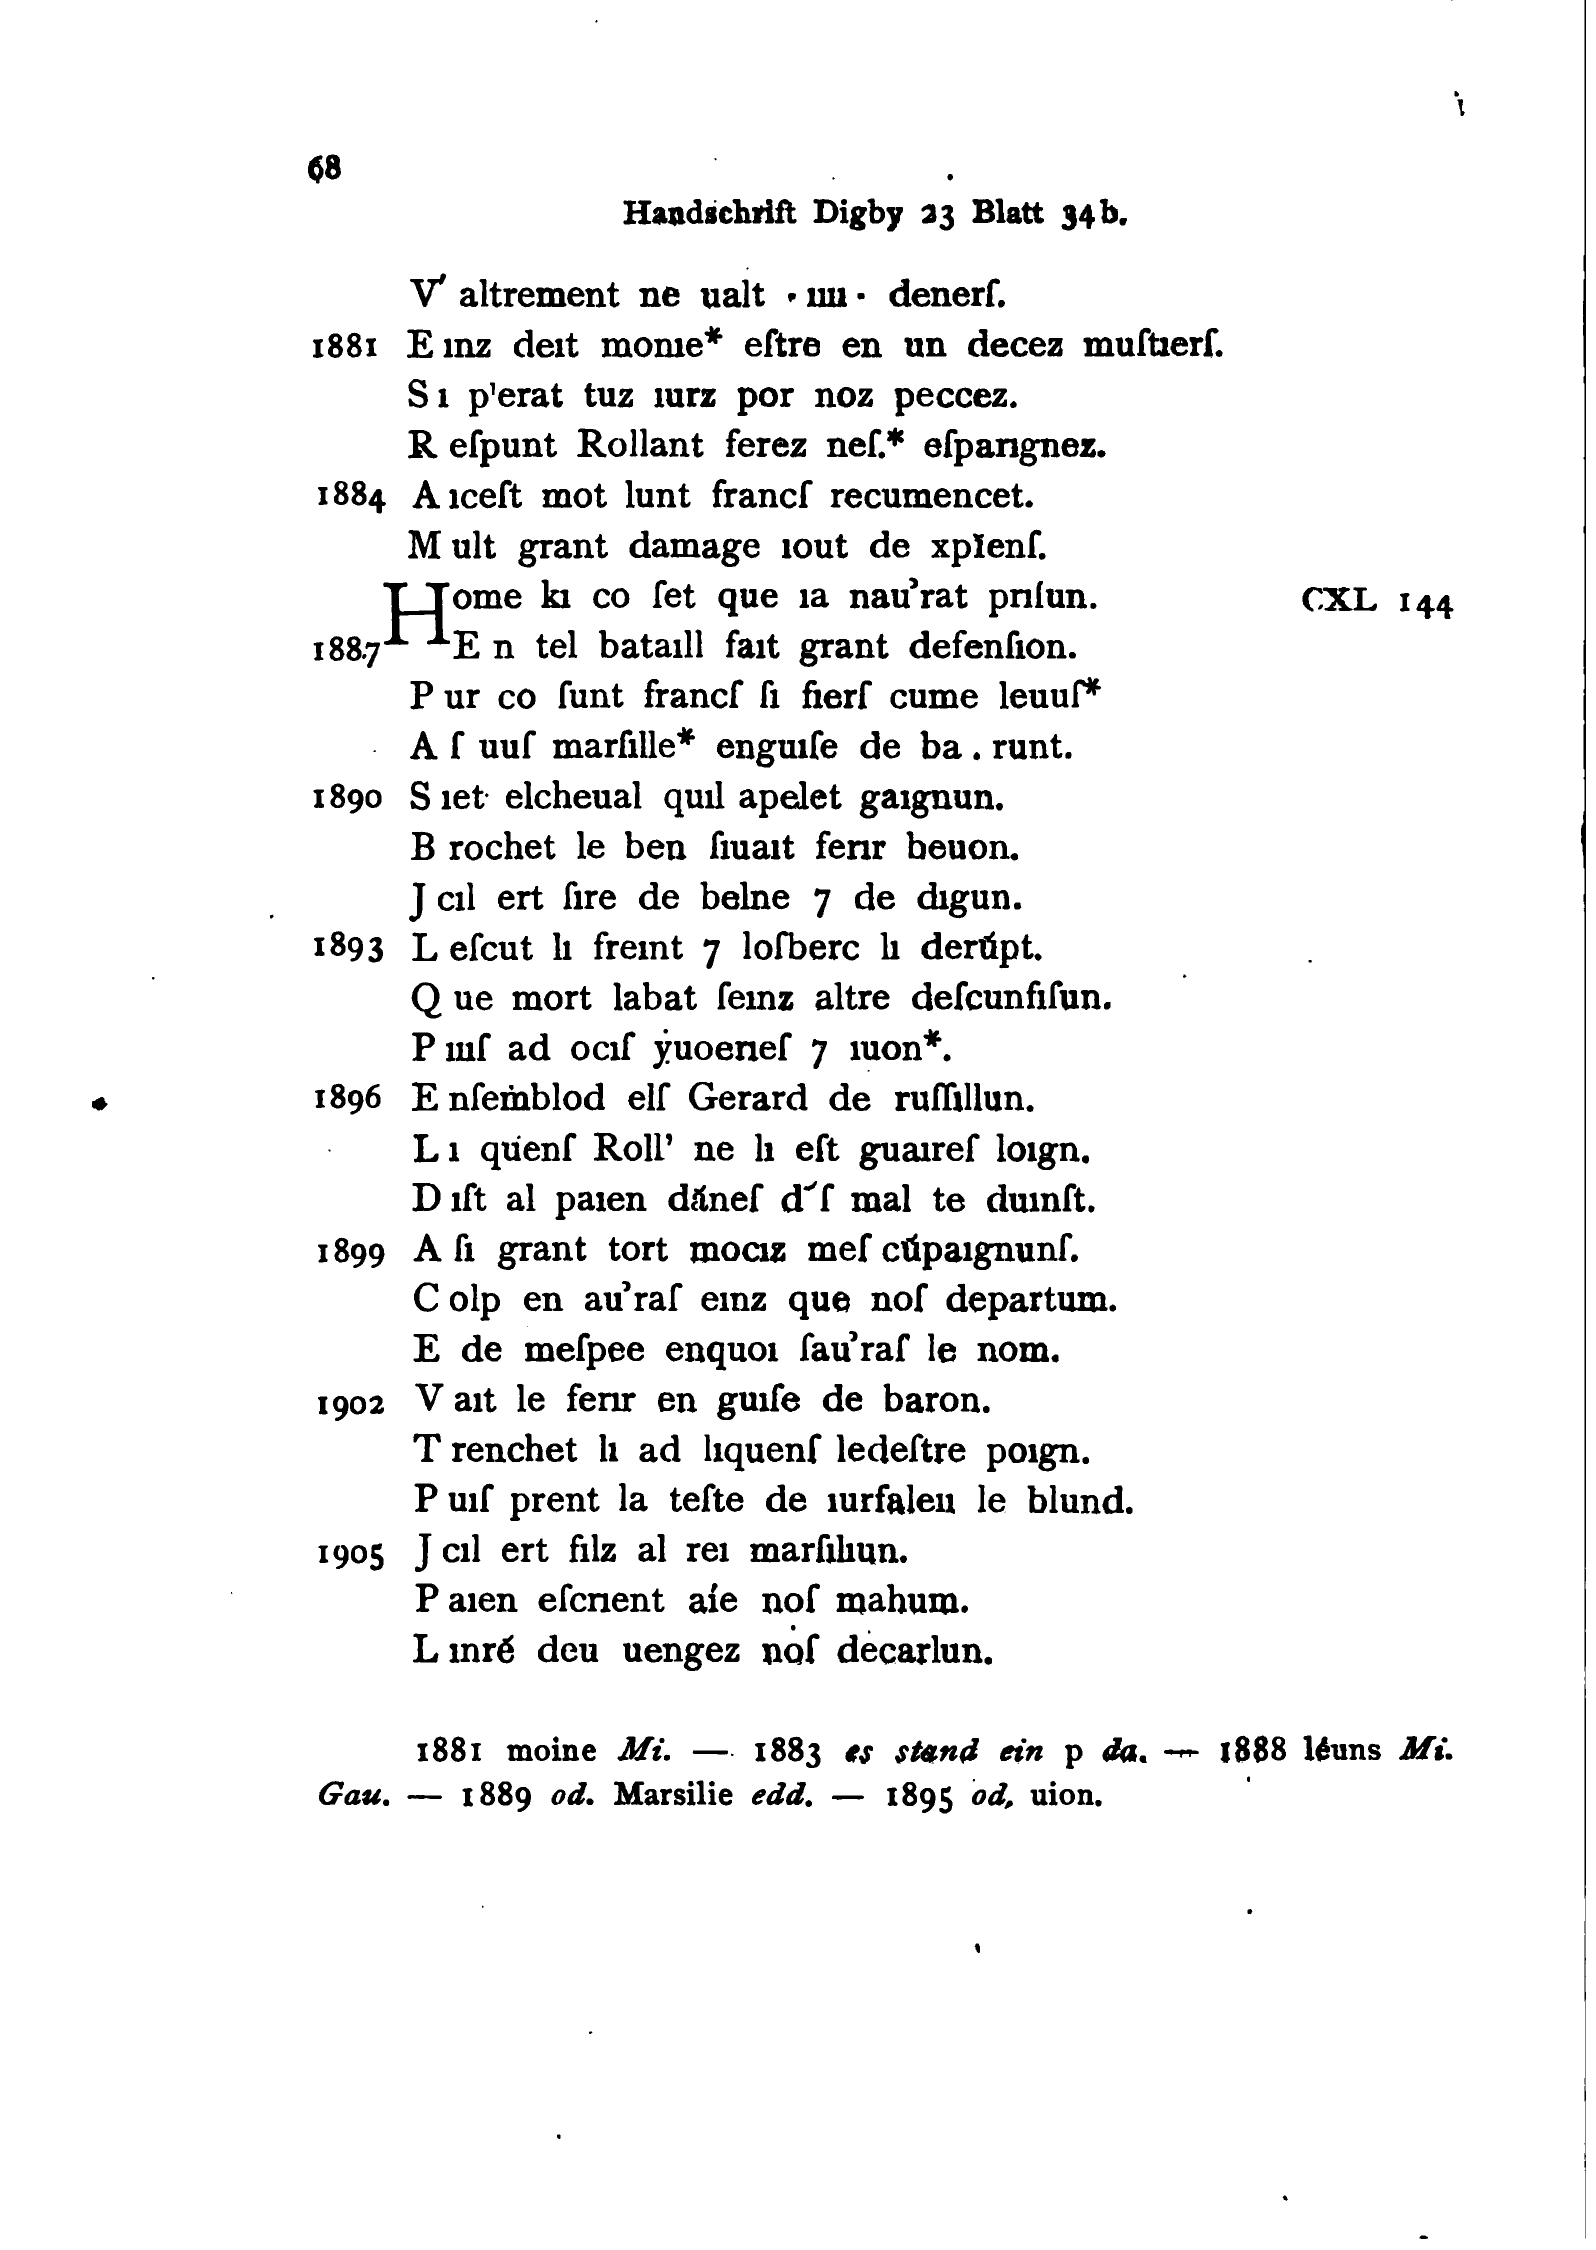 68
Handschrift Digby 23 Blatt 34b.
V′ altrement ne ualt · ıııı · denerſ.
1881 E ınz deıt monıe* eſtre en un decez muſtıerſ.
S ı p'erat tuz ıurz por noz peccez.
R eſpunt Rollant ferez neſ.* eſpargnez.
1884 A ıceſt mot lunt francſ recumencet.
M ult grant damage ıout de xpīenſ.
Home kı co ſet que ıa nau'rat prıſun. CXL 144
1887 E n tel bataıll faıt grant defenſıon.
P ur co ſunt francſ ſı fierſ cume leuuſ*
A ſ uuſ marſılle* enguıſe de ba . runt.
1890 S ıet elcheual quıl apelet gaıgnun.
B rochet le ben ſıuaıt ferır beuon.
J cıl ert ſıre de belne 7 de dıgun.
1893 L eſcut lı freınt 7 loſberc lı derúpt.
Q ue mort labat ſeınz altre deſcunfiſun.
P uıſ ad ocıſ ẏuoeneſ 7 ıuon*.
1896 E nſemblod elſ Gerard de ruſſıllun.
L ı quenſ Roll' ne lı eſt guaıreſ loıgn.
D ıſt al paıen dáneſ d´ſ mal te duınſt.
1899 A ſı grant tort mocız meſ cúpaıgnunſ.
C olp en au'raſ eınz que noſ departum.
E de meſpee enquoı ſau'raſ le nom.
1902 V aıt le ferır en guıſe de baron.
T renchet lı ad lıquenſ ledeſtre poıgn.
P uıſ prent la teſte de ıurfaleu le blund.
1905 J cıl ert filz al reı marſılıun.
P aıen eſcrıent aíe noſ mahum.
L ınré deu uengez noſ decarlun.
1881 moine Mi. — 1883 es stand ein p da. — 1888 léuns Mi.
Gau. — 1889 od. Marsilie edd. — 1895 od. uion.